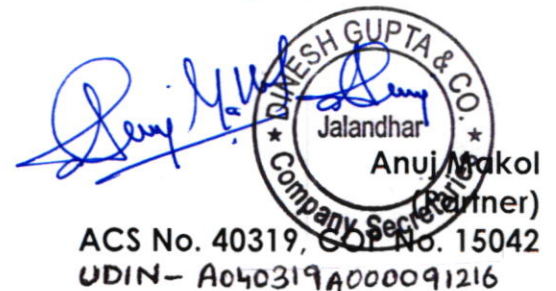 DINESH GUPTA & CO.
Jalandhar
Company Secretaries
Anuj Makol
(Partner)
ACS No. 40319, COP No. 15042
UDIN- A040319A000091216